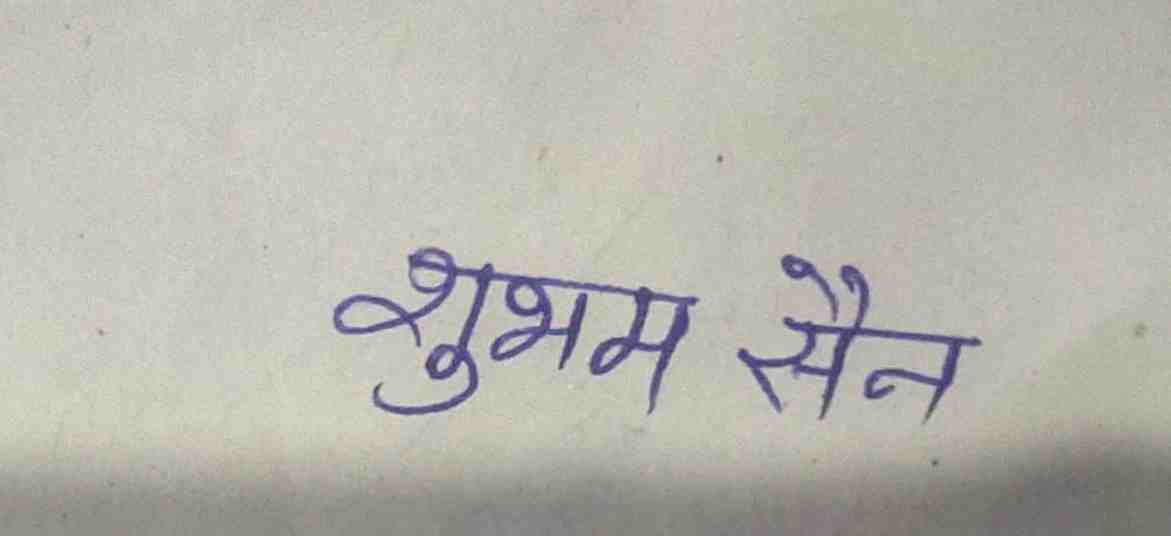 शुभम सैन